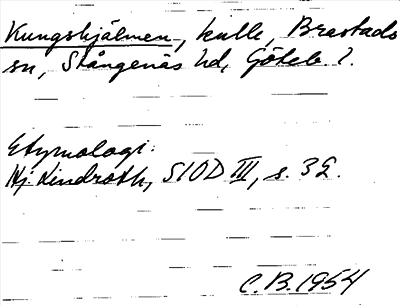 Kungshjälmen, kulle, Brastads
sn, Stångenäs hd, Göteb. l.
Etymologi:
Hj. Lindroth, SIOD III, s. 32.
C.B. 1954